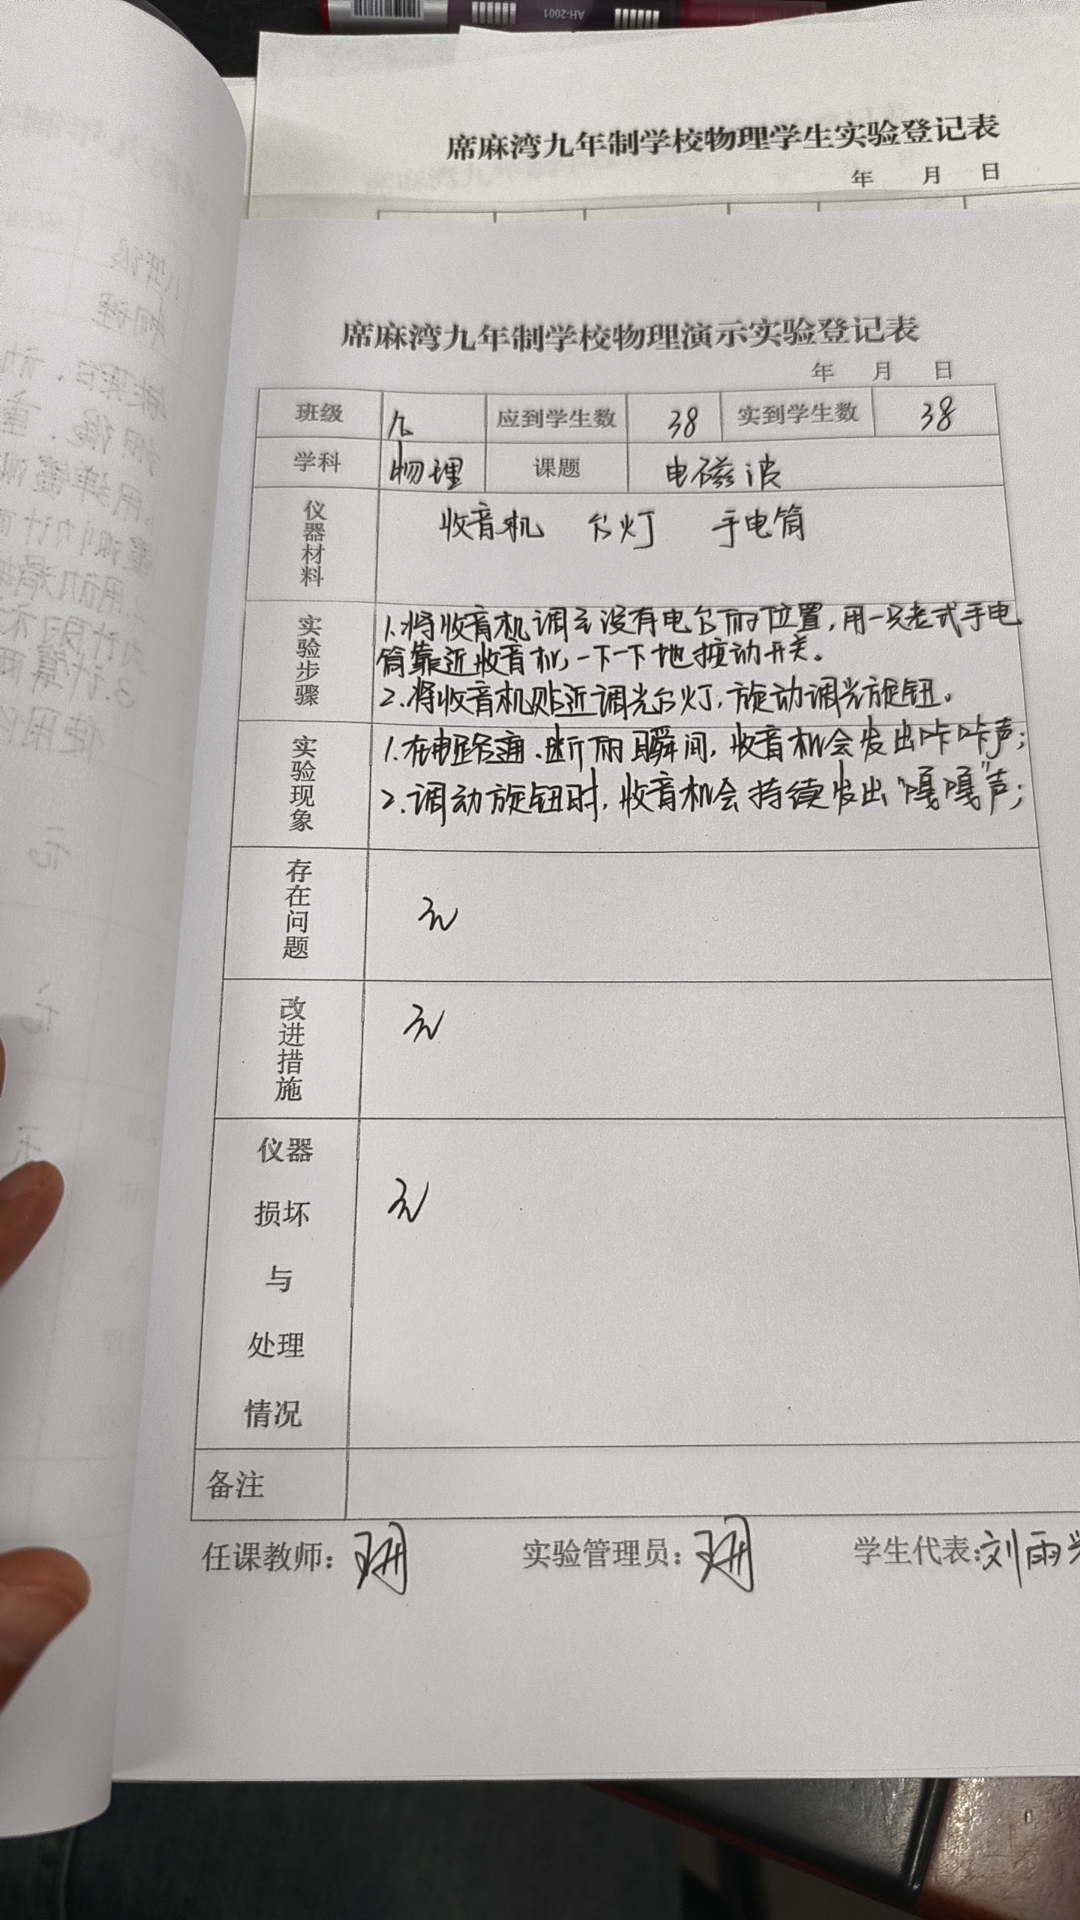 AH-2001
席麻湾九年制学校物理学生实验登记表
年 月 日
席麻湾九年制学校物理演示实验登记表
年 月 日
班级 九 应到学生数 38 实到学生数 38
学科 物理 课题 电磁波
仪器材料 收音机 台灯 手电筒
实验步骤
1.将收音机调至没有电台的位置,用一只老式手电
筒靠近收音机,一下一下地推动开关。
2.将收音机贴近调光台灯,旋动调光旋钮。
实验现象
1.在电路通、断的瞬间,收音机会发出咔咔声;
2.调动旋钮时,收音机会持续发出“嘎嘎”声;
存在问题 无
改进措施 无
仪器
损坏
与
处理
情况
无
备注
任课教师: 实验管理员: 学生代表:刘雨